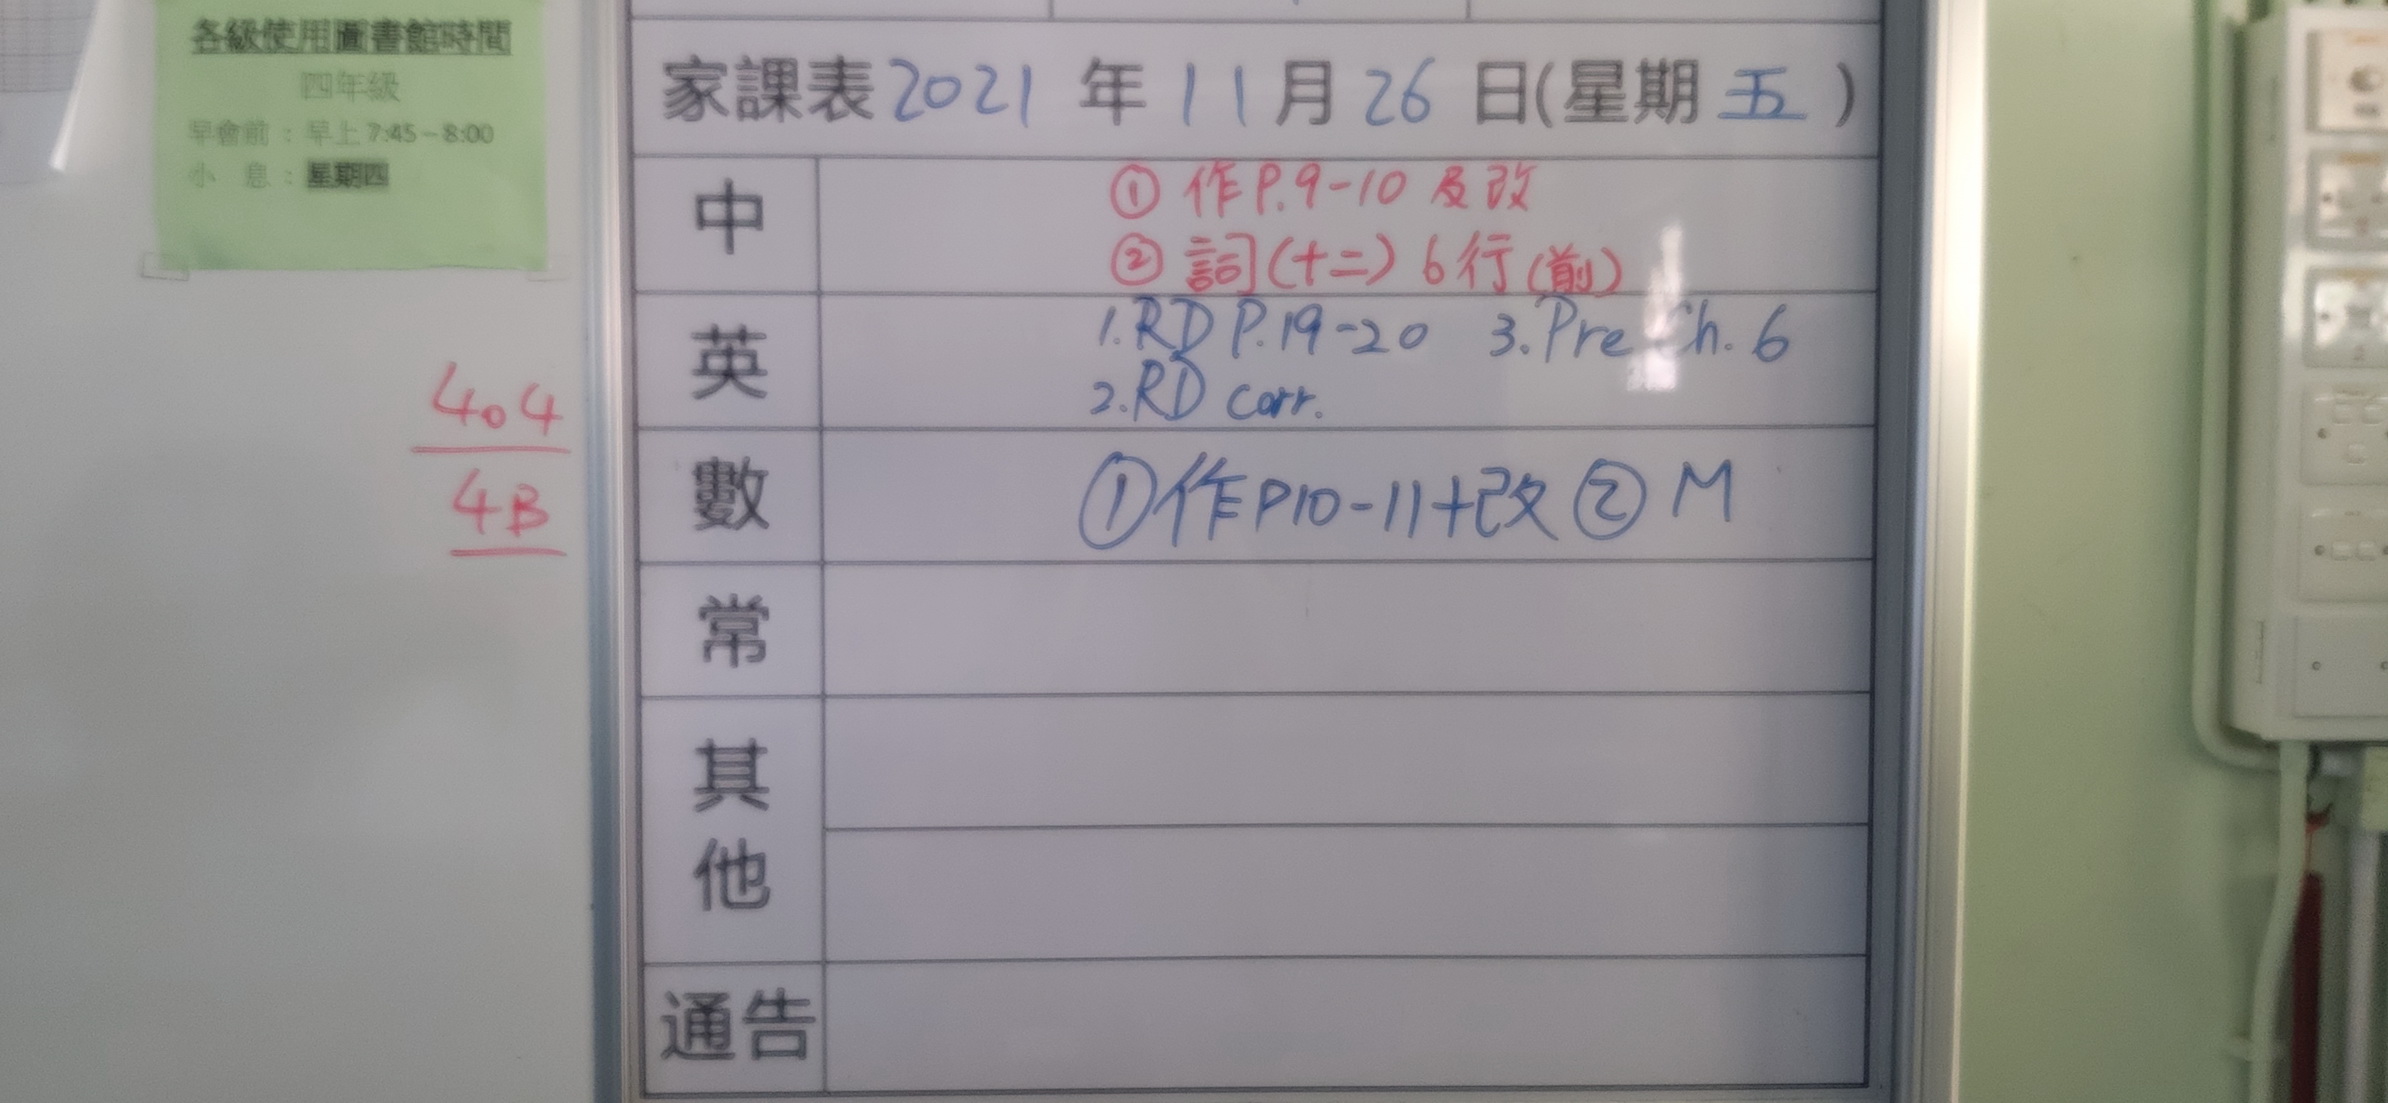 各級使用圖書館時間
四年級
早會前：早上7:45-8:00
小　息：星期四
404
4B
家課表2021 年 11 月 26 日(星期 五 )
中
① 作P.9-10 及改
② 詞(十二) 6行(削)
英
1.RD P.19-20 3.Pre Ch. 6
2.RD corr.
數
①作P10-11+改 ② M
常
其
他
通告